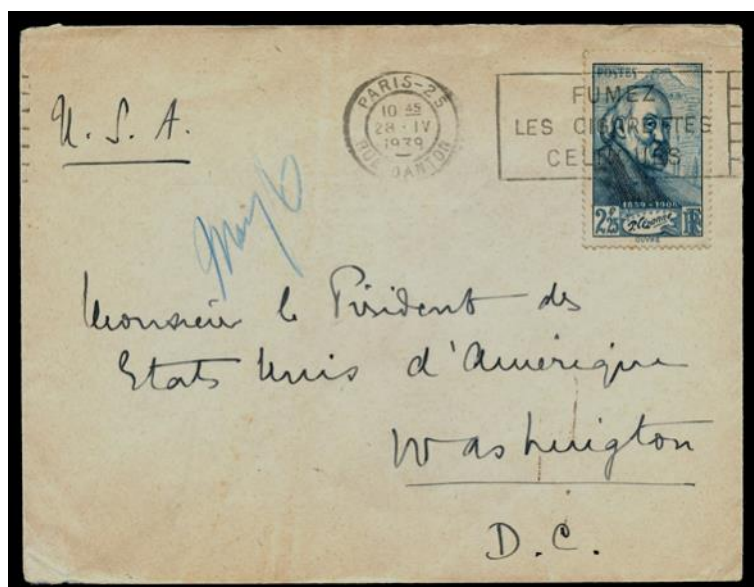 PARIS-25
10 45
28-IV
1939
RUE DANTON
POSTES
FUMEZ
LES CIGARETTES
CELTIQUES
1839-1906
2F25
P Cezanne
RF
OUVRÉ
U. S. A.
May 6
Monsieur le Président des
Etats Unis d'Amérique
Washington
D. C.